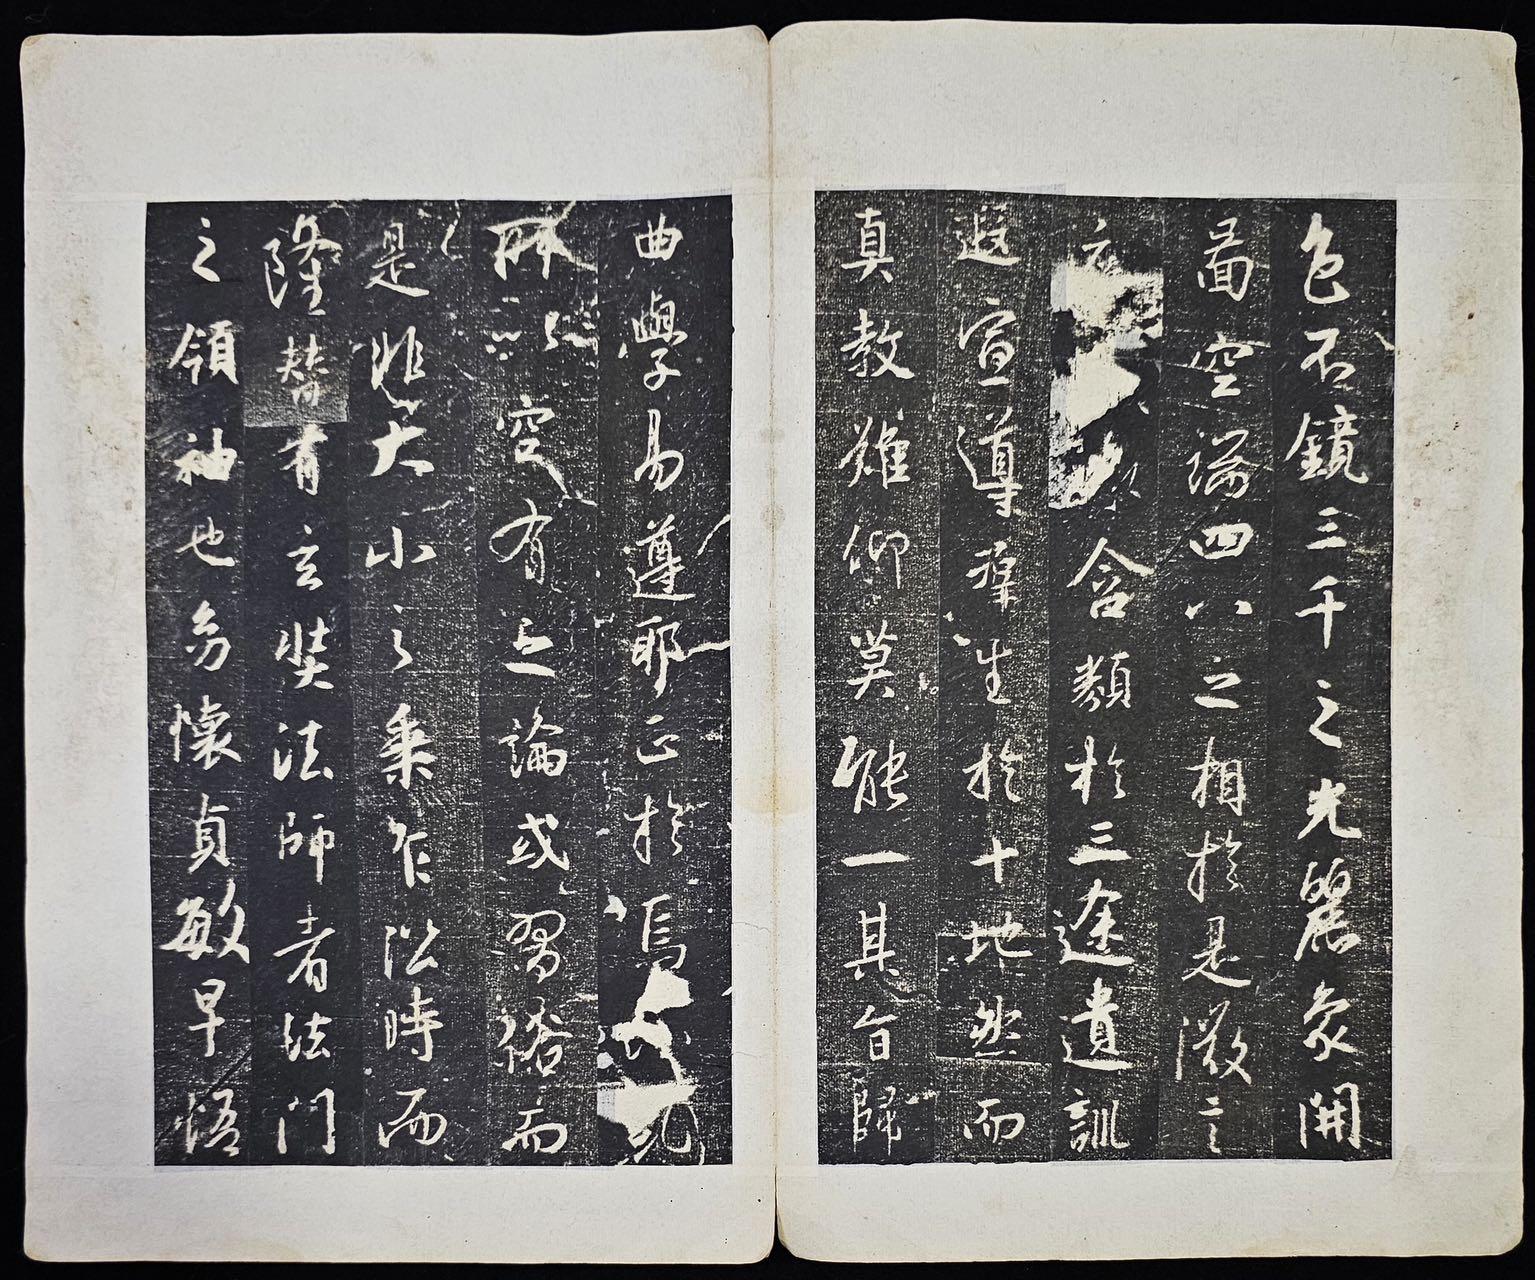 色不鏡三千之光麗象開
圖空端四八之相於是微言
含類於三途遺訓
遐宣導群生於十地然而
真教難仰莫能一其旨歸
曲學易遵耶正於焉糺
所以空有之論或習俗而
是非大小之乘乍沿時而
隆替有玄奘法師者法門
之領袖也幼懷貞敏早悟